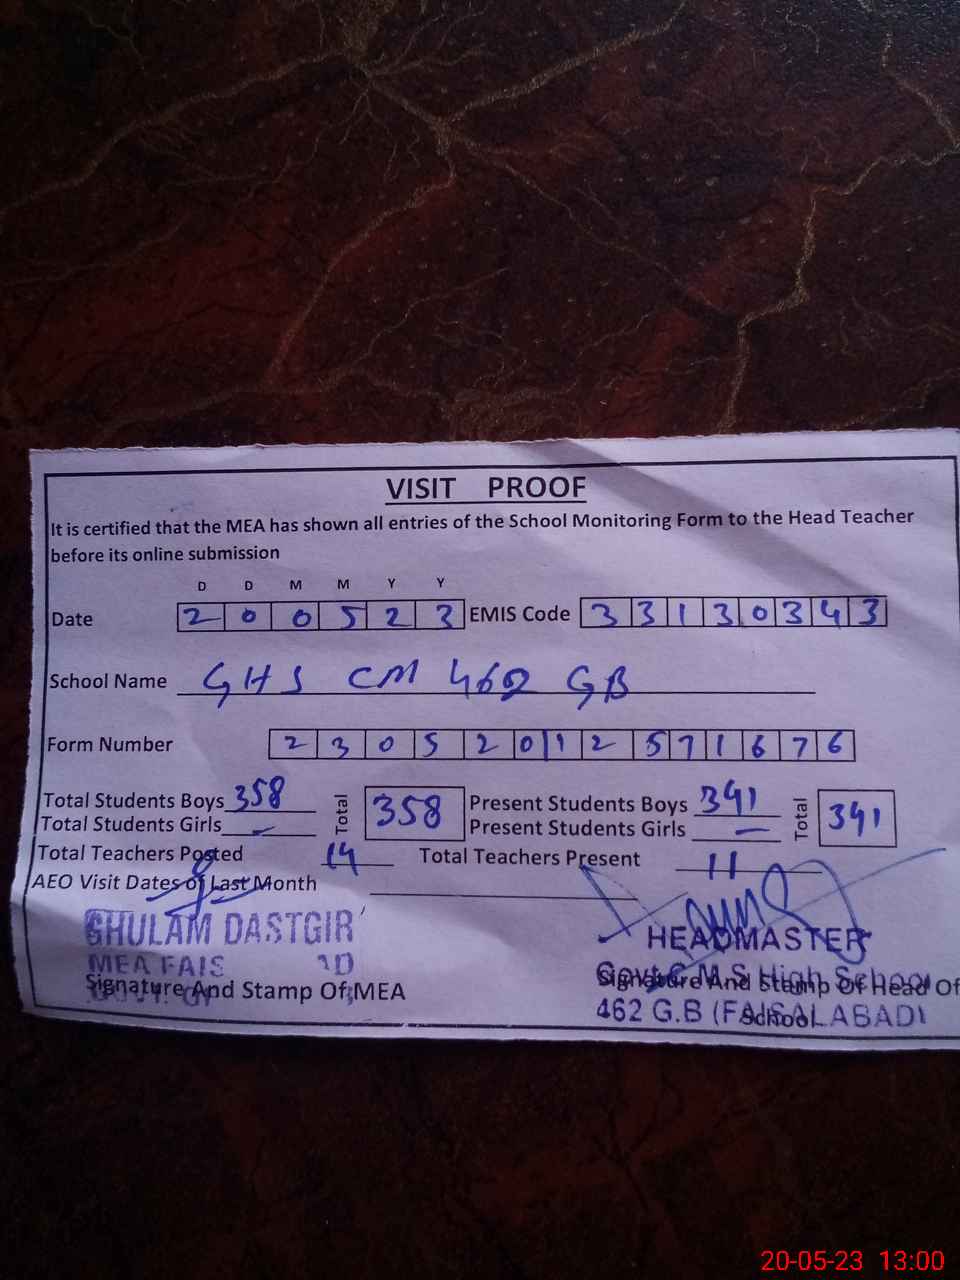 VISIT PROOF
It is certified that the MEA has shown all entries of the School Monitoring Form to the Head Teacher
before its online submission
D D M M Y Y
Date 2 0 0 5 2 3 EMIS Code 3 3 1 3 0 3 4 3
School Name GHS CM 462 GB
Form Number 2 3 0 5 2 0 1 2 5 7 1 6 7 6
Total Students Boys 358 Total 358 Present Students Boys 341 Total 341
Total Students Girls – Present Students Girls –
Total Teachers Posted 14 Total Teachers Present 11
AEO Visit Dates of Last Month
GHULAM DASTGIR
MEA FAIS D
Signature And Stamp Of MEA
HEADMASTER
Govt C.M.S High School
Signature And Stamp Of Head Of
School
462 G.B (FAISALABAD)
20-05-23 13:00